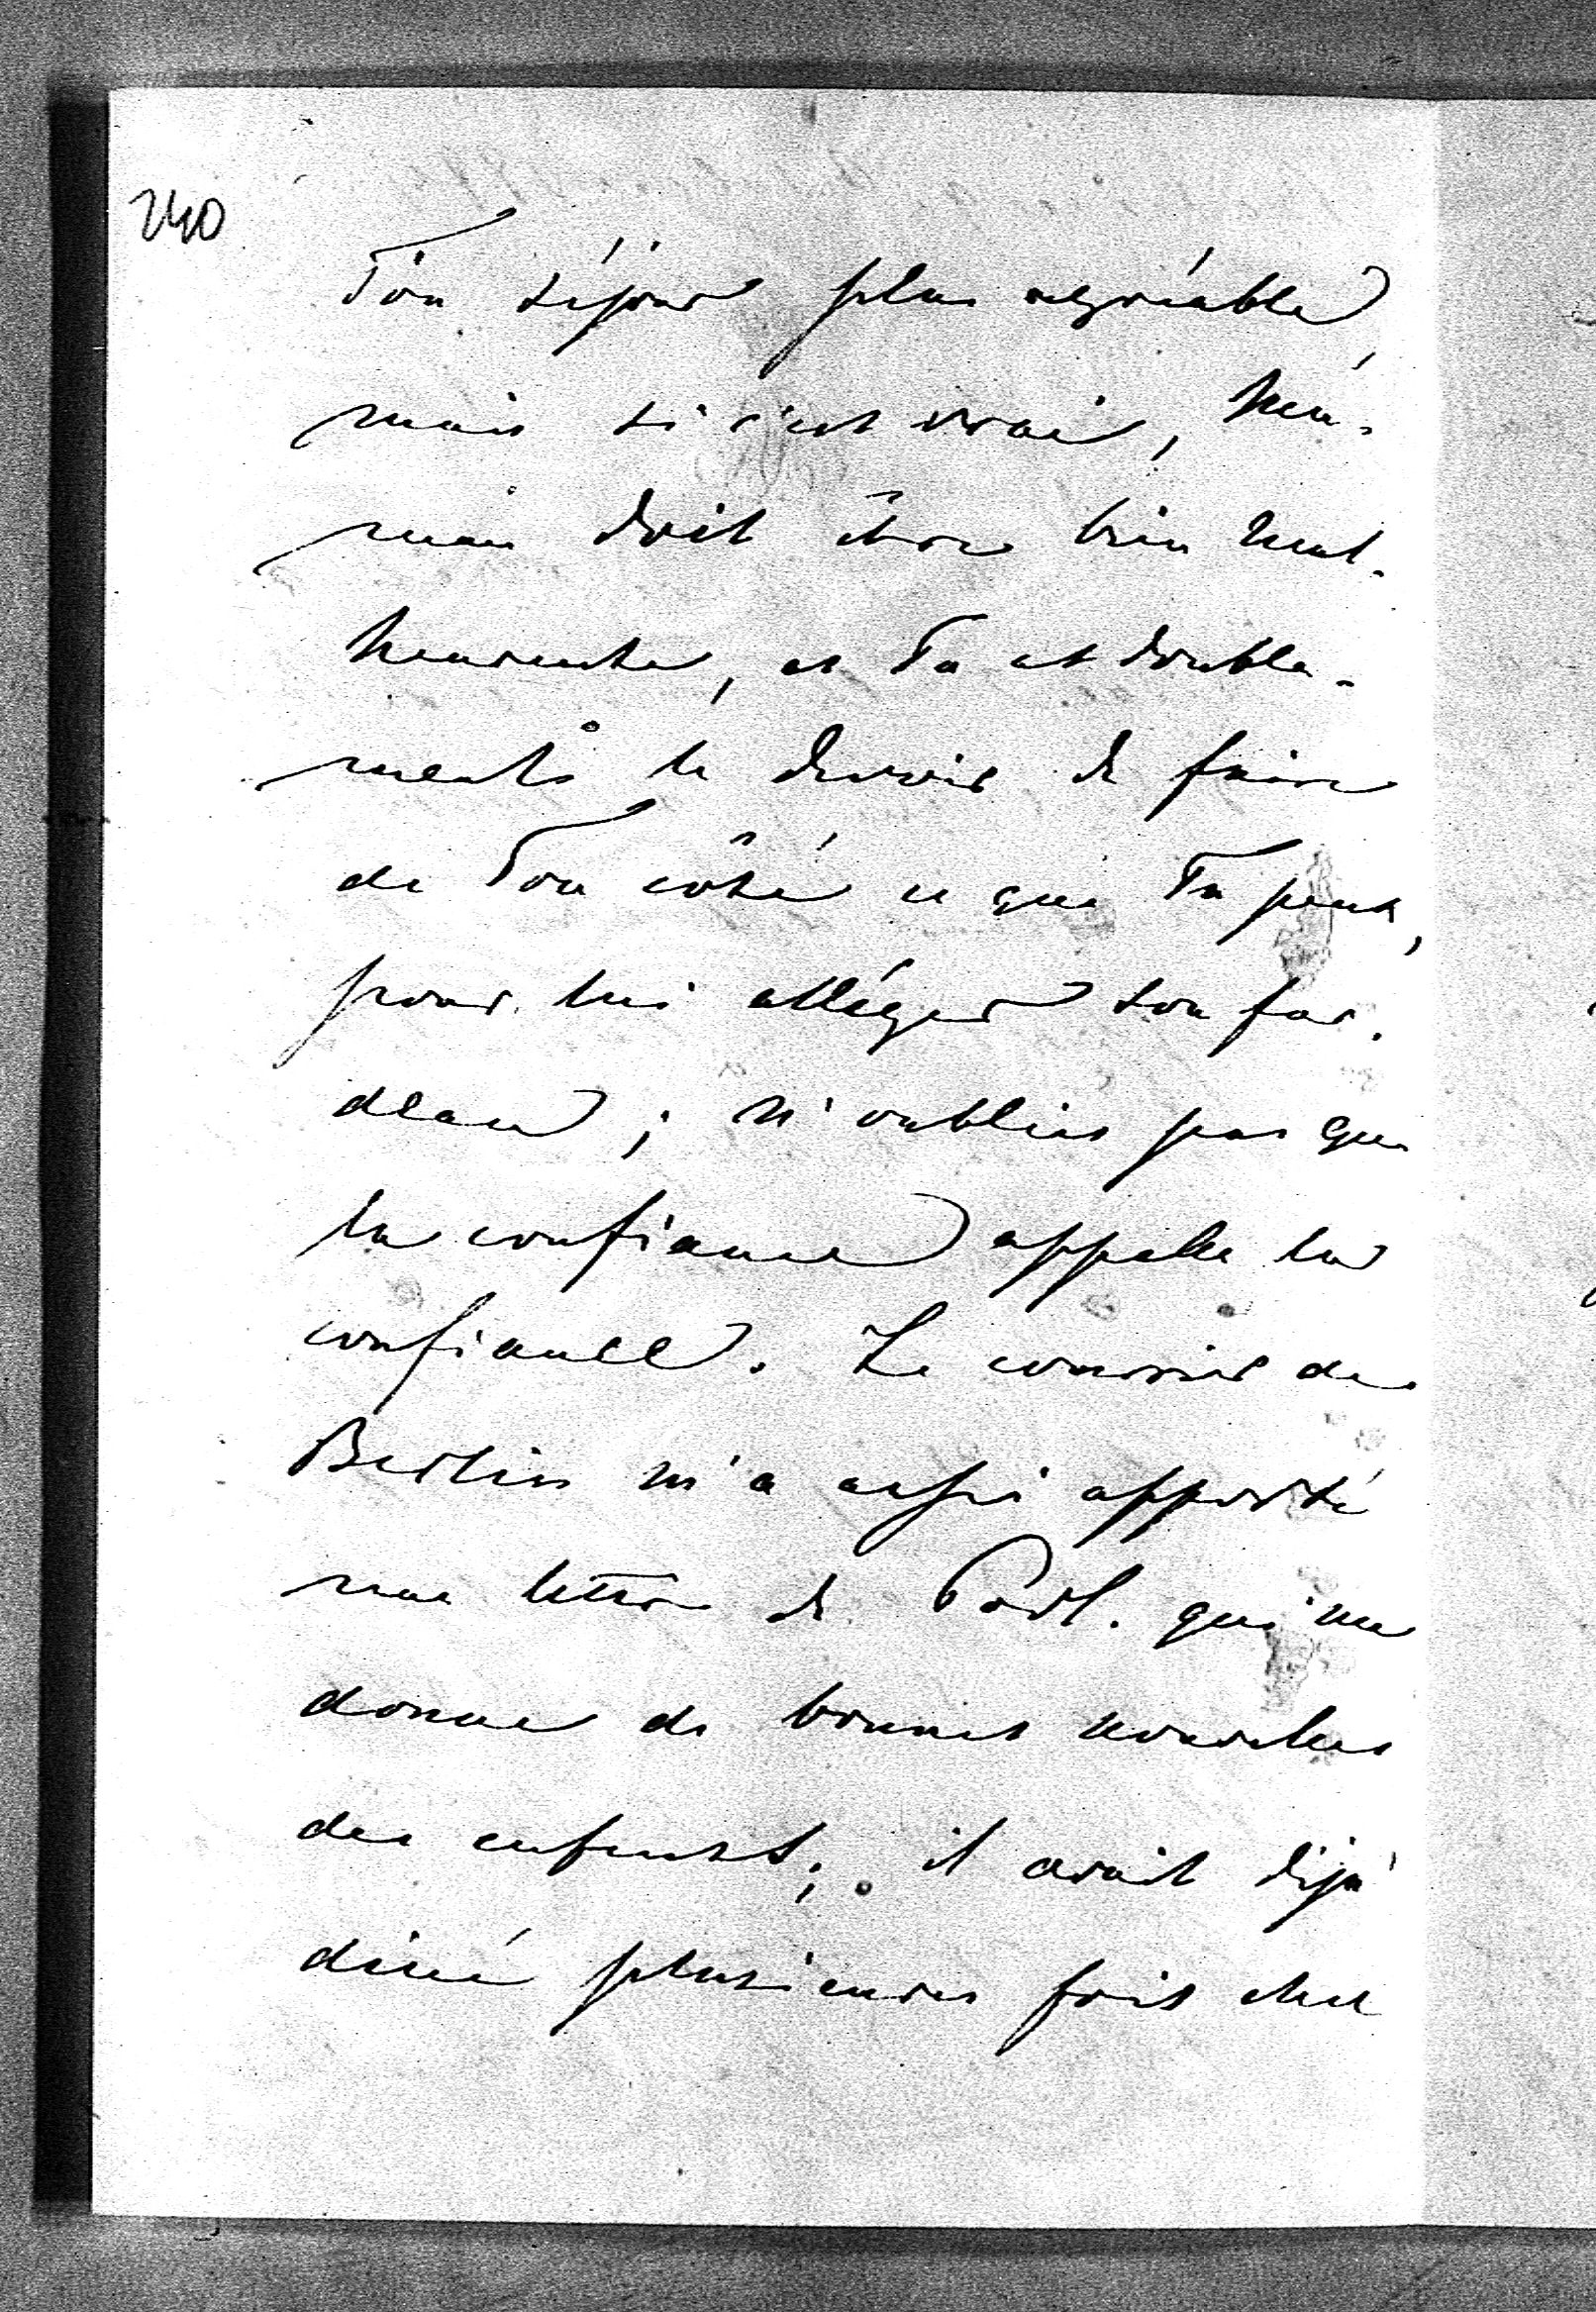 240
Ton séjour plus agréable,
mais si c'est vrai, Mu-
mui doit être bien mal-
heureuse, et Tu as double-
ment le devoir de faire
de Ton côté ce que Tu peux,
pour lui alléger son far-
deau; n'oublies pas que
la confiance appelle la
confiance. Le courrier de
Berlin m'a aussi apporté
une lettre de Pourt. qui me
donne de bonnes nouvelles
des enfants; il avait déjà
diné plusieurs fois chez